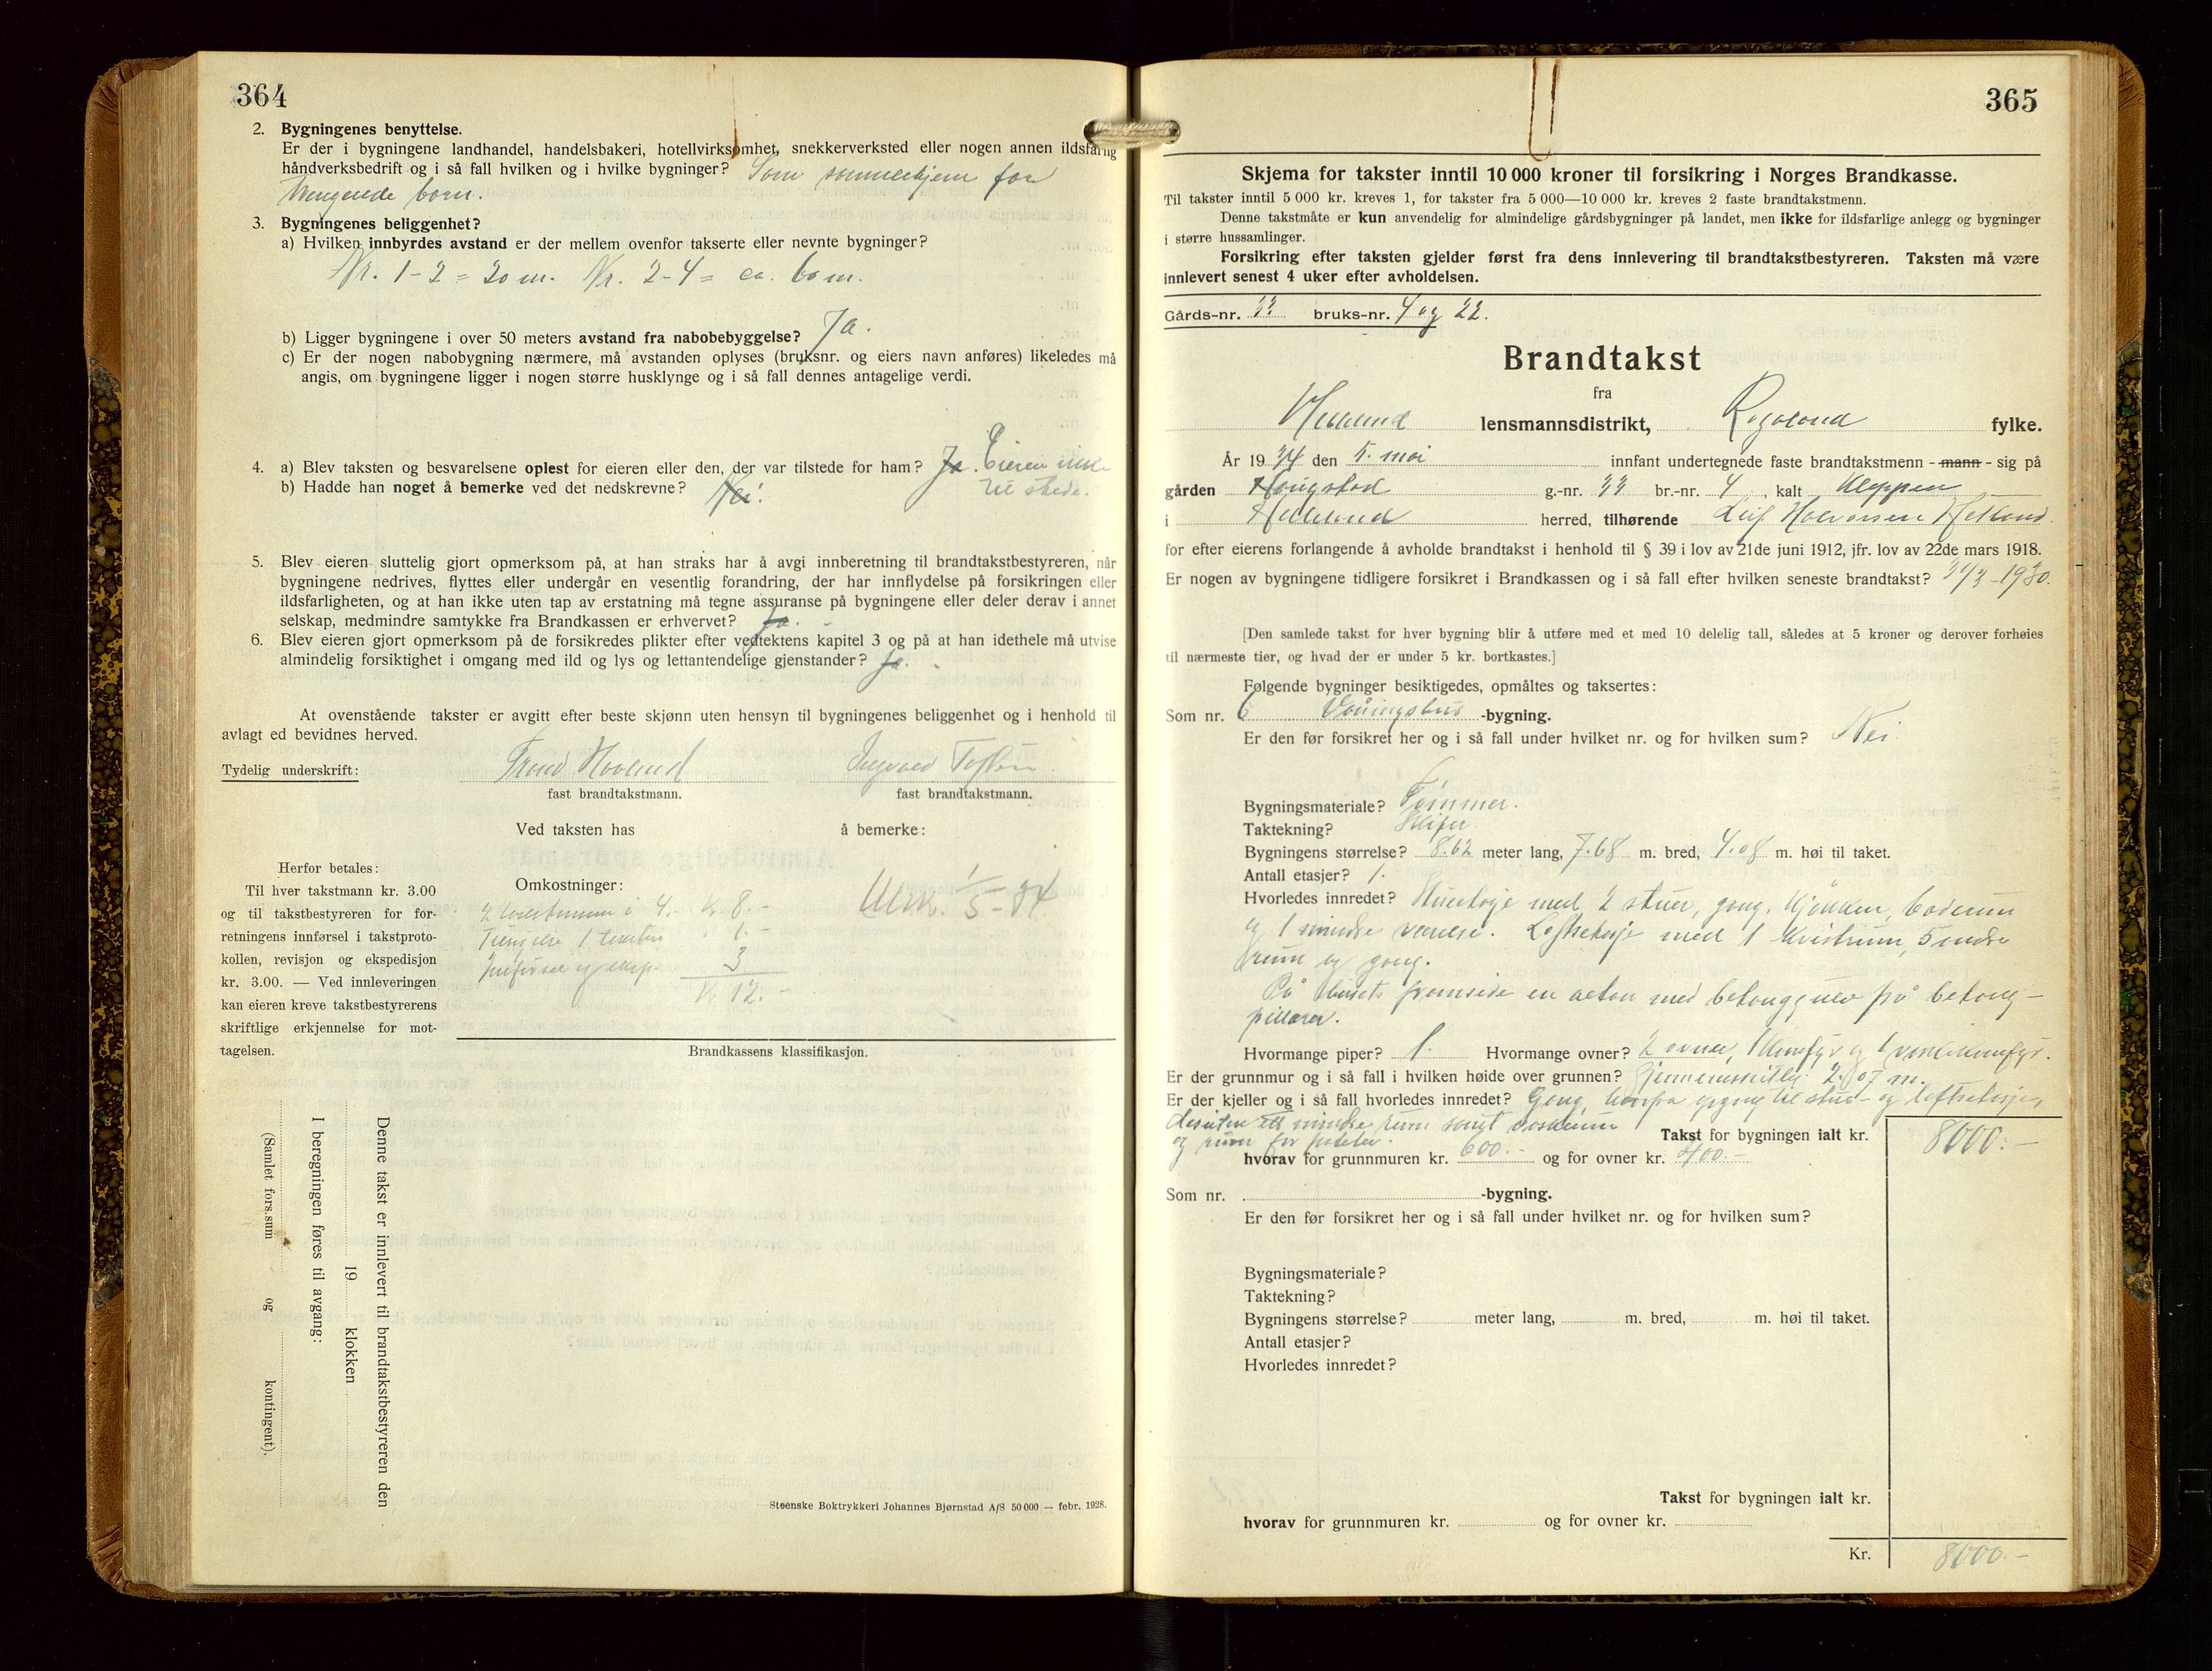 364
2. Bygningenes benyttelse.
Er der i bygningene landhandel, handelsbakeri, hotellvirksomhet, snekkerverksted eller nogen annen ildsfarlig
håndverksbedrift og i så fall hvilken og i hvilke bygninger? Som sommerhjem for
trengende born.
3. Bygningenes beliggenhet?
a) Hvilken innbyrdes avstand er der mellem ovenfor takserte eller nevnte bygninger?
Nr. 1-2 = 20 m. Nr. 2-4 = ca. 60 m.
b) Ligger bygningene i over 50 meters avstand fra nabobebyggelse? Ja.
c) Er der nogen nabobygning nærmere, må avstanden oplyses (bruksnr. og eiers navn anføres) likeledes må
angis, om bygningene ligger i nogen større husklynge og i så fall dennes antagelige verdi.
4. a) Blev taksten og besvarelsene oplest for eieren eller den, der var tilstede for ham? Ja. Eieren ikke
b) Hadde han noget å bemerke ved det nedskrevne? Nei. til stede.
5. Blev eieren sluttelig gjort opmerksom på, at han straks har å avgi innberetning til brandtakstbestyreren, når
bygningene nedrives, flyttes eller undergår en vesentlig forandring, der har innflydelse på forsikringen eller
ildsfarligheten, og at han ikke uten tap av erstatning må tegne assuranse på bygningene eller deler derav i annet
selskap, medmindre samtykke fra Brandkassen er erhvervet? Ja.
6. Blev eieren gjort opmerksom på de forsikredes plikter efter vedtektens kapitel 3 og på at han idethele må utvise
almindelig forsiktighet i omgang med ild og lys og lettantendelige gjenstander? Ja.
At ovenstående takster er avgitt efter beste skjønn uten hensyn til bygningenes beliggenhet og i henhold til
avlagt ed bevidnes herved.
Tydelig underskrift: Trond Hovland
fast brandtakstmann. fast brandtakstmann.
Ved taksten has å bemerke:
Herfor betales:
Til hver takstmann kr. 3.00
og til takstbestyreren for for-
retningens innførsel i takstproto-
kollen, revisjon og ekspedisjon
kr. 3.00. — Ved innleveringen
kan eieren kreve takstbestyrerens
skriftlige erkjennelse for mot-
tagelsen.
Omkostninger:
2 i 4.- Kr. 8.-
1 1.-
og eksp. 3
Kr. 12.-
1/5-34
Brandkassens klassifikasjon.
Denne takst er innlevert til brandtakstbestyreren den
19 klokken
I beregningen føres til avgang:
(Samlet fors.sum og kontingent).
Steenske Boktrykkeri Johannes Bjørnstad A/S 50 000 — febr. 1928.
365
Skjema for takster inntil 10 000 kroner til forsikring i Norges Brandkasse.
Til takster inntil 5 000 kr. kreves 1, for takster fra 5 000—10 000 kr. kreves 2 faste brandtakstmenn.
Denne takstmåte er kun anvendelig for almindelige gårdsbygninger på landet, men ikke for ildsfarlige anlegg og bygninger
i større hussamlinger.
Forsikring efter taksten gjelder først fra dens innlevering til brandtakstbestyreren. Taksten må være
innlevert senest 4 uker efter avholdelsen.
Gårds-nr. 33 bruks-nr. 4 og 22.
Brandtakst
fra
Hetland lensmannsdistrikt, Rogaland fylke.
År 1934 den 5. mai innfant undertegnede faste brandtakstmenn - mann - sig på
gården Haugstad g.-nr. 33 br.-nr. 4, kalt Kleppen
i Hetland herred, tilhørende Leif Halvorsen Hetland.
for efter eierens forlangende å avholde brandtakst i henhold til § 39 i lov av 21de juni 1912, jfr. lov av 22de mars 1918.
Er nogen av bygningene tidligere forsikret i Brandkassen og i så fall efter hvilken seneste brandtakst? 31/3-1930.
[Den samlede takst for hver bygning blir å utføre med et med 10 delelig tall, således at 5 kroner og derover forhøies
til nærmeste tier, og hvad der er under 5 kr. bortkastes.]
Følgende bygninger besiktigedes, opmåltes og taksertes:
Som nr. 6 Våningshus -bygning.
Er den før forsikret her og i så fall under hvilket nr. og for hvilken sum? Nei.
Bygningsmateriale? Tømmer.
Taktekning? Skifer.
Bygningens størrelse? 8.62 meter lang, 7.68 m. bred, 4.08 m. høi til taket.
Antall etasjer? 1.
Hvorledes innredet? med 2 stuer, gang, kjøkken, baderum
og 1 mindre værelse. Loftsetasje med 1 kvistrum, 5 mdre
rum og gang.
På husets framside en altan med betonggulv på betong-
pillarer.
Hvormange piper? 1. Hvormange ovner? 2 ovner, 1 komfyr og 1
Er der grunnmur og i så fall i hvilken høide over grunnen? Gjennemsnitlig 2.07 m.
Er der kjeller og i så fall hvorledes innredet? Gang, hvorfra opgang til stue- og loftsetasje,
desuten ett mindre rum samt vaskerum
og rum for poteter. Takst for bygningen ialt kr. 8000.-
hvorav for grunnmuren kr. 600.- og for ovner kr. 400.-
Som nr. -bygning.
Er den før forsikret her og i så fall under hvilket nr. og for hvilken sum?
Bygningsmateriale?
Taktekning?
Bygningens størrelse? meter lang, m. bred, m. høi til taket.
Antall etasjer?
Hvorledes innredet?
Takst for bygningen ialt kr.
hvorav for grunnmuren kr. og for ovner kr.
Kr. 8000.-